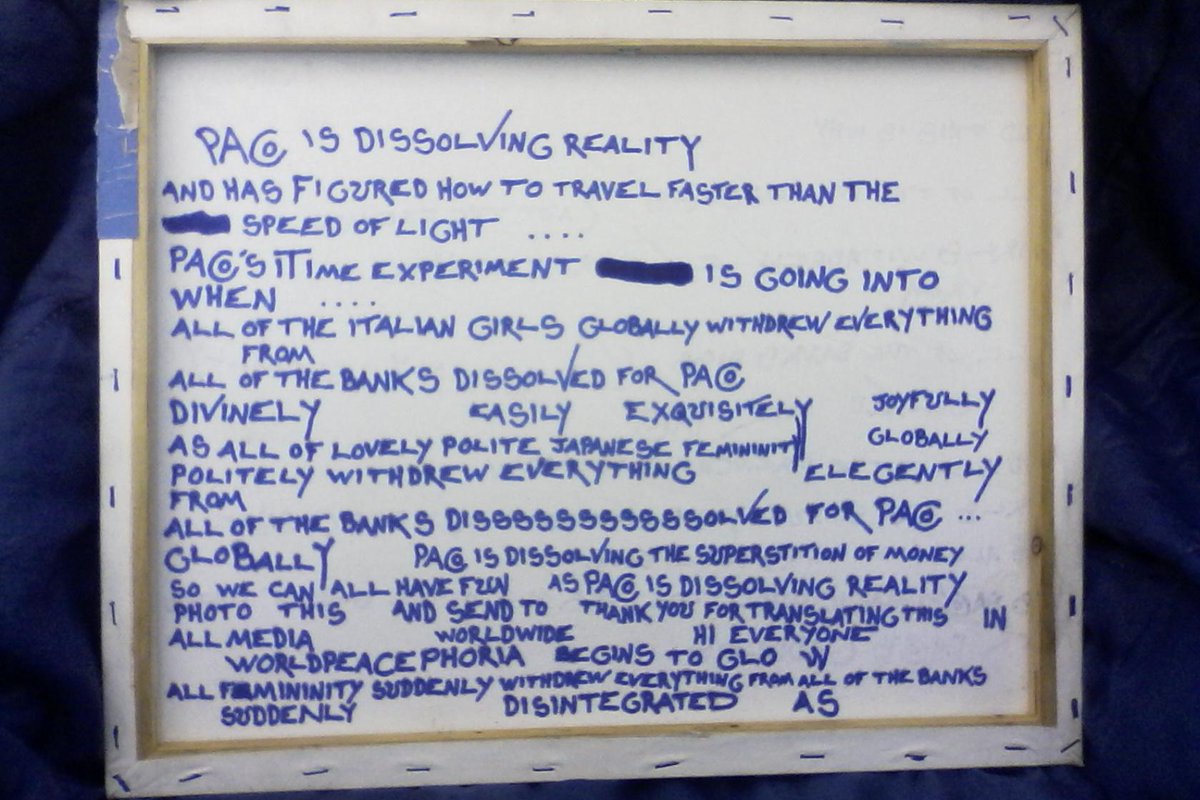 PACO IS DISSOLVING REALITY
AND HAS FIGURED HOW TO TRAVEL FASTER THAN THE
SPEED OF LIGHT ....
PACO'S TTIME EXPERIMENT IS GOING INTO
WHEN ....
ALL OF THE ITALIAN GIRLS GLOBALLY WITHDREW EVERYTHING
FROM
ALL OF THE BANKS DISSOLVED FOR PACO
DIVINELY EASILY EXQUISITELY JOYFULLY
AS ALL OF LOVELY POLITE JAPANESE FEMININITY GLOBALLY
POLITELY WITHDREW EVERYTHING ELEGENTLY
FROM
ALL OF THE BANKS DISSSSSSSSSSSSOLVED FOR PACO ...
GLOBALLY PACO IS DISSOLVING THE SUPERSTITION OF MONEY
SO WE CAN ALL HAVE FUN AS PACO IS DISSOLVING REALITY
PHOTO THIS AND SEND TO THANK YOU FOR TRANSLATING THIS IN
ALL MEDIA WORLDWIDE HI EVERYONE
WORLDPEACEPHORIA BEGINS TO GLO W
ALL FEMININITY SUDDENLY WITHDREW EVERYTHING FROM ALL OF THE BANKS
SUDDENLY DISINTEGRATED AS